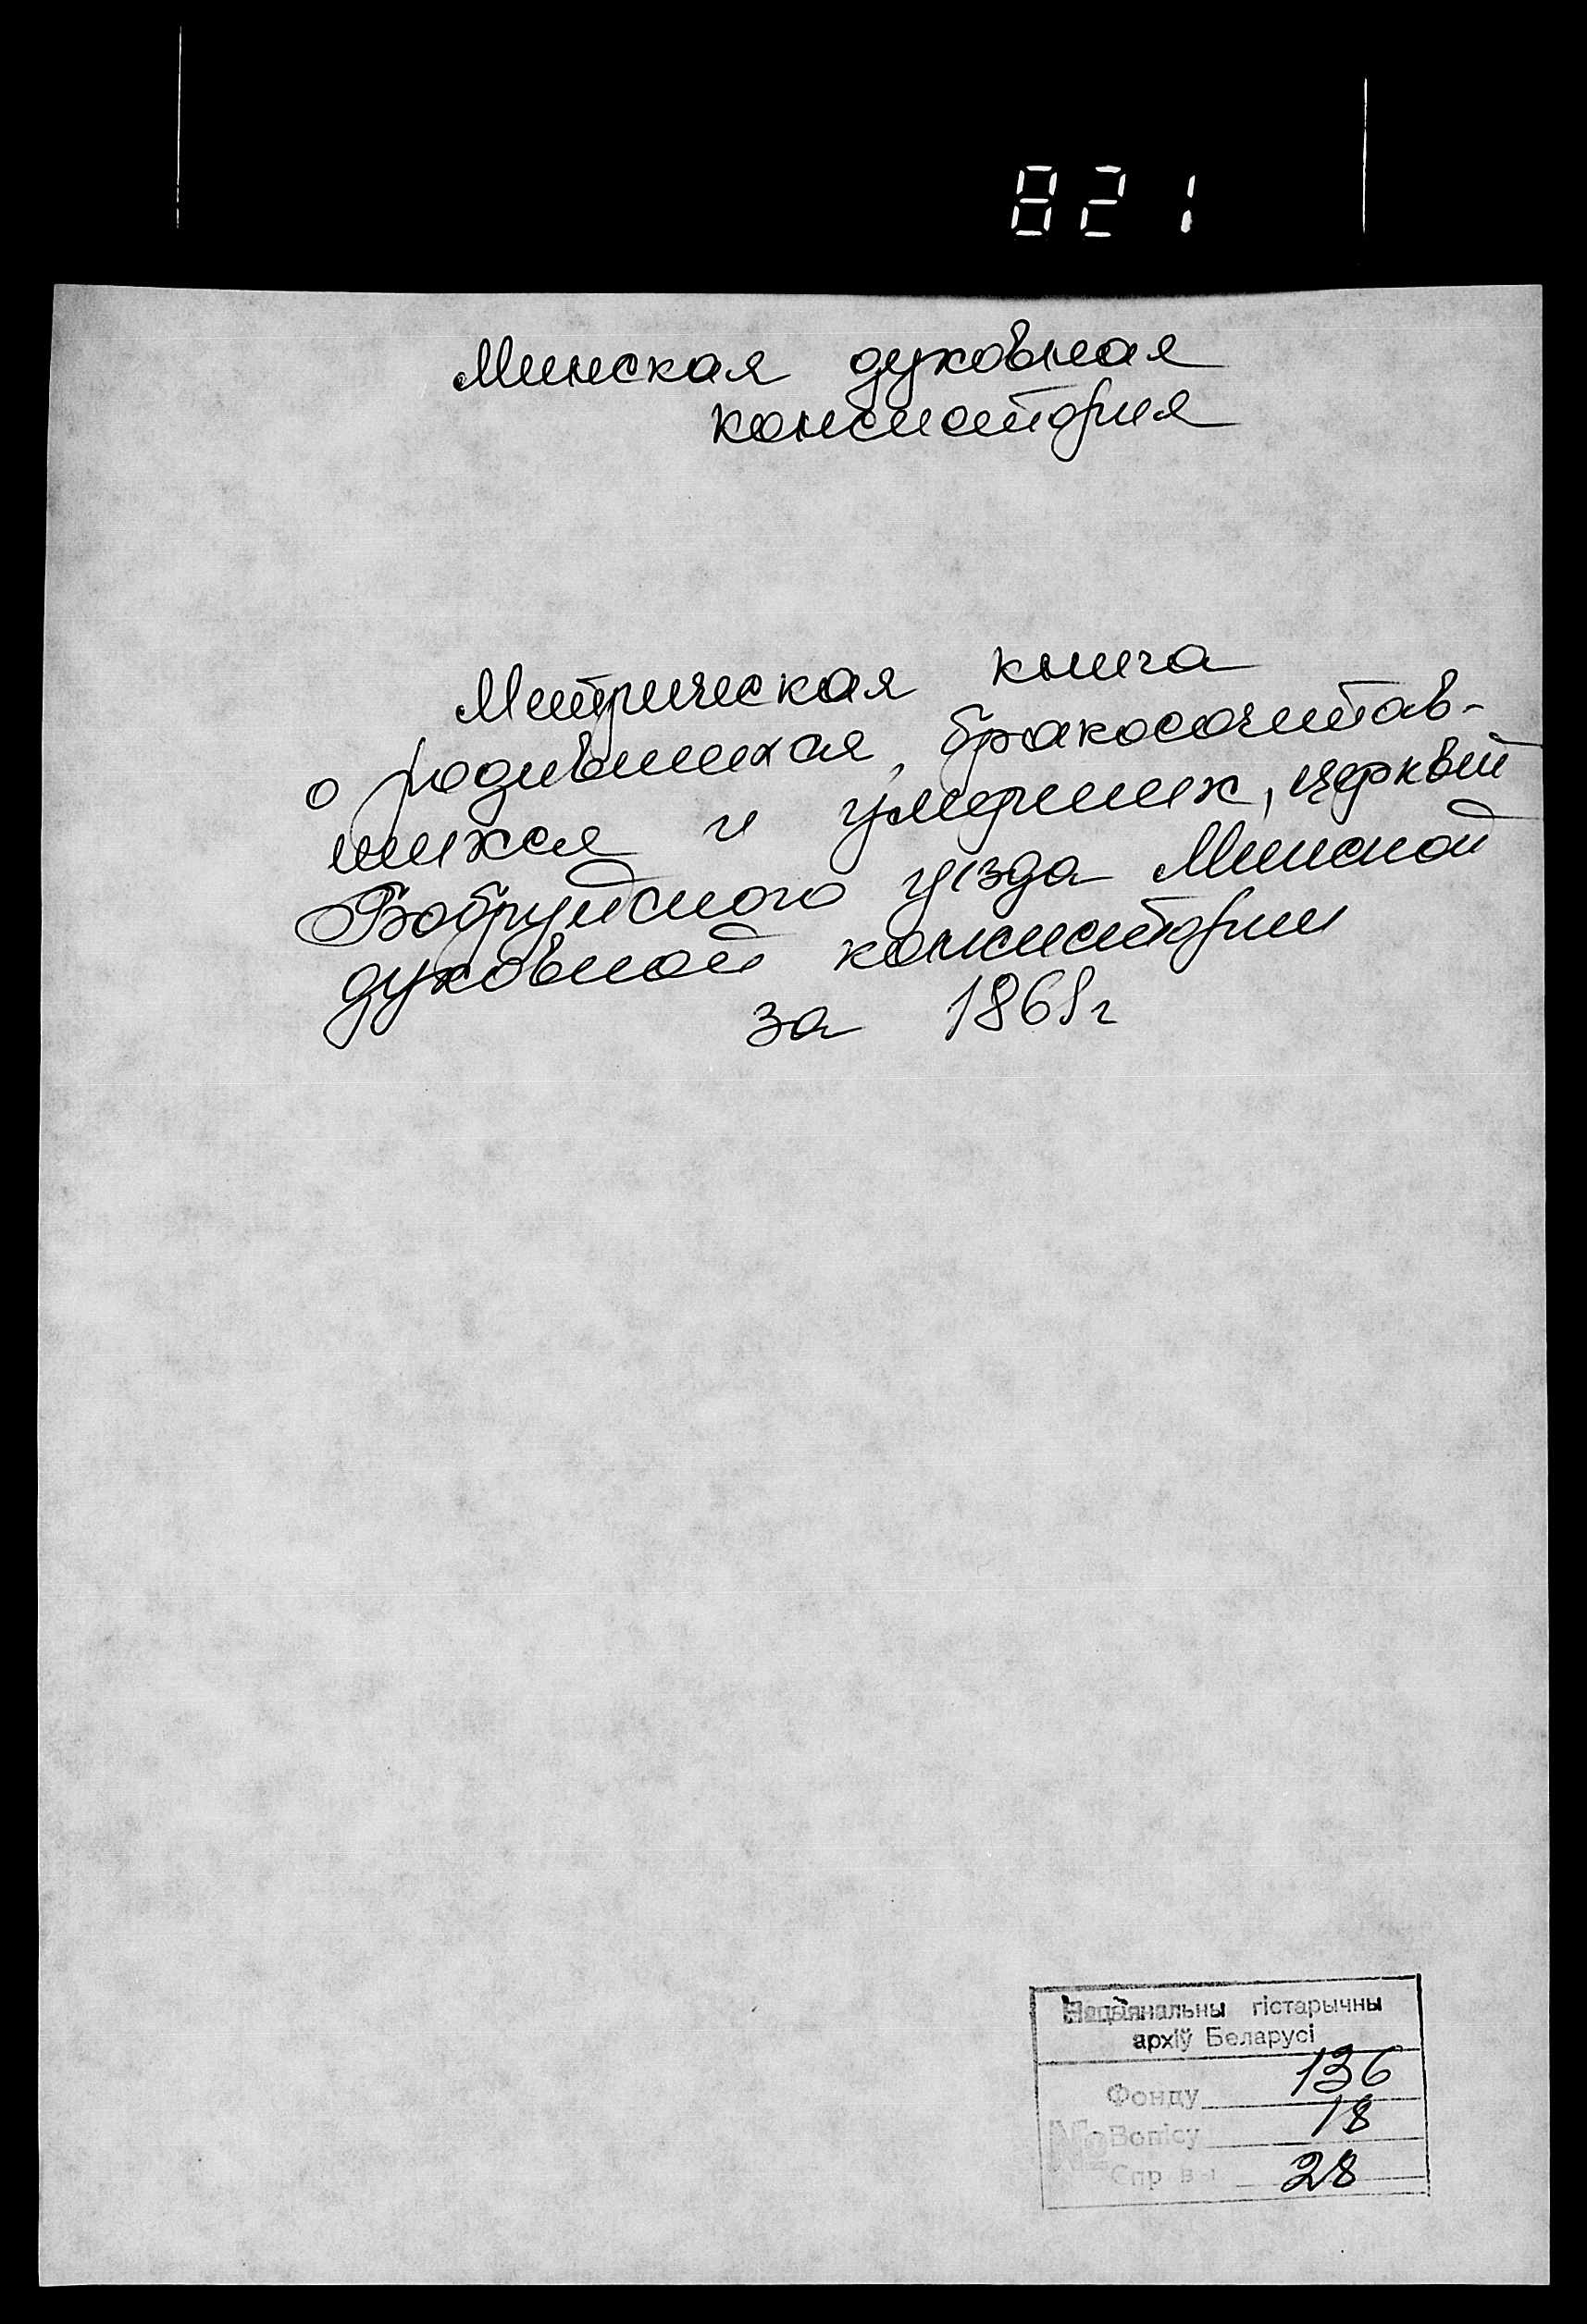 821
Минская духовная
консистория
Метрическая книга
о родившихся, бракосочетав-
шихся и умерших, церквей
Бобруйского уезда Минской
духовной консистории
за 1868г
Нацыянальны гістарычны
архіў Беларусі
Фонду 136
№ Вопісу 18
Справы 28